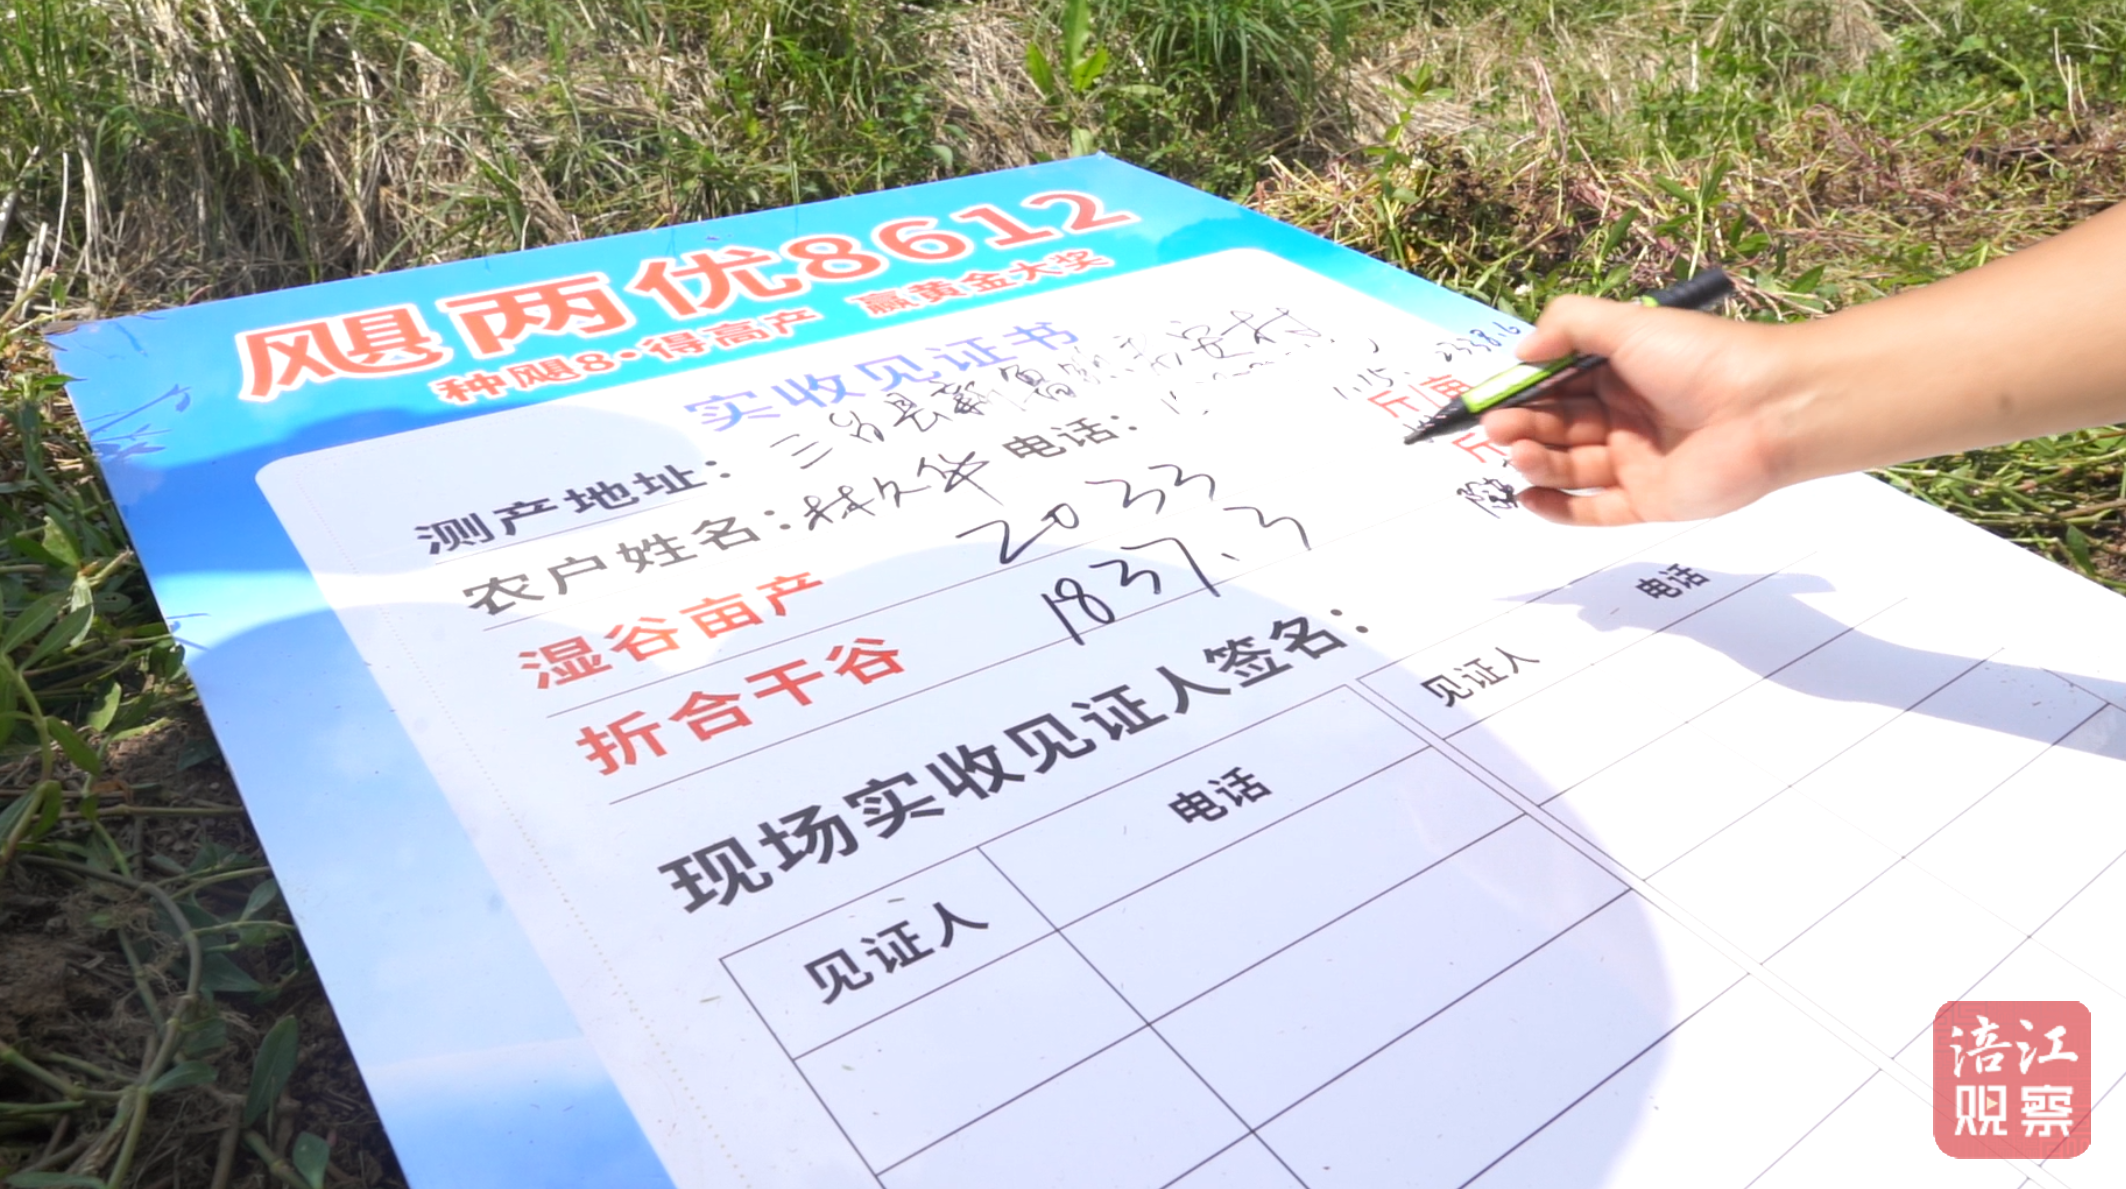 飓两优8612
种飓8·得高产 赢黄金大奖
实收见证书
测产地址：三台县新鲁镇 安村
农户姓名：林久华 电话：
1.15. 2338.6
湿谷亩产 2033 斤/亩
折合干谷 1837.3 斤
现场实收见证人签名：
见证人 电话 见证人 电话
涪江
观察